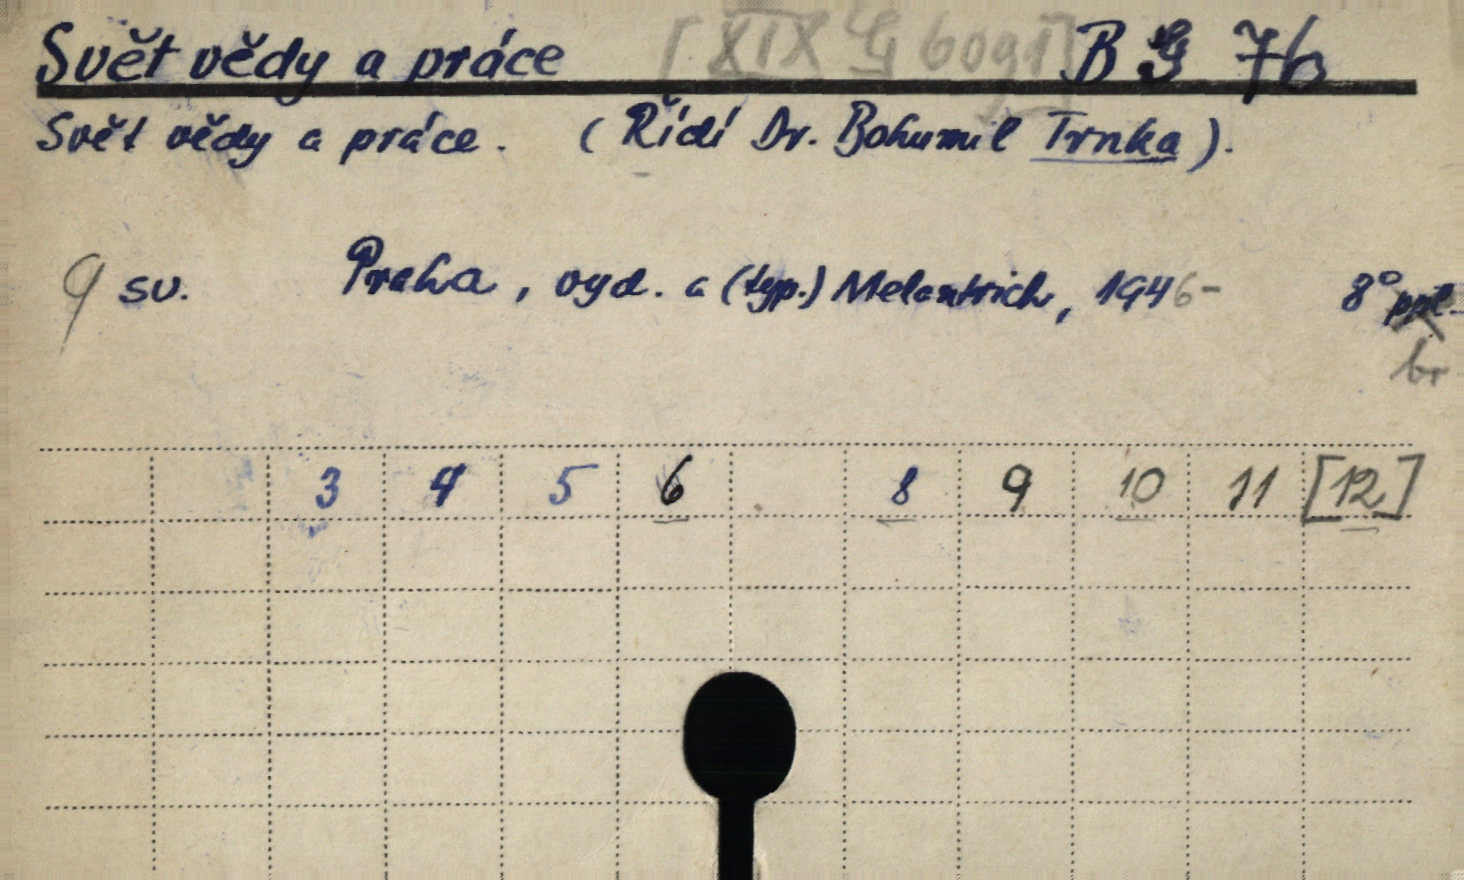 Svět vědy a práce [XIX G 6091] B G 76
Svět vědy a práce. (Řídí Dr. Bohumil Trnka).
9 sv. Praha, vyd. a (typ.) Melantrich, 1946- 8° ppl.
br
3 4 5 6 8 9 10 11 [12]